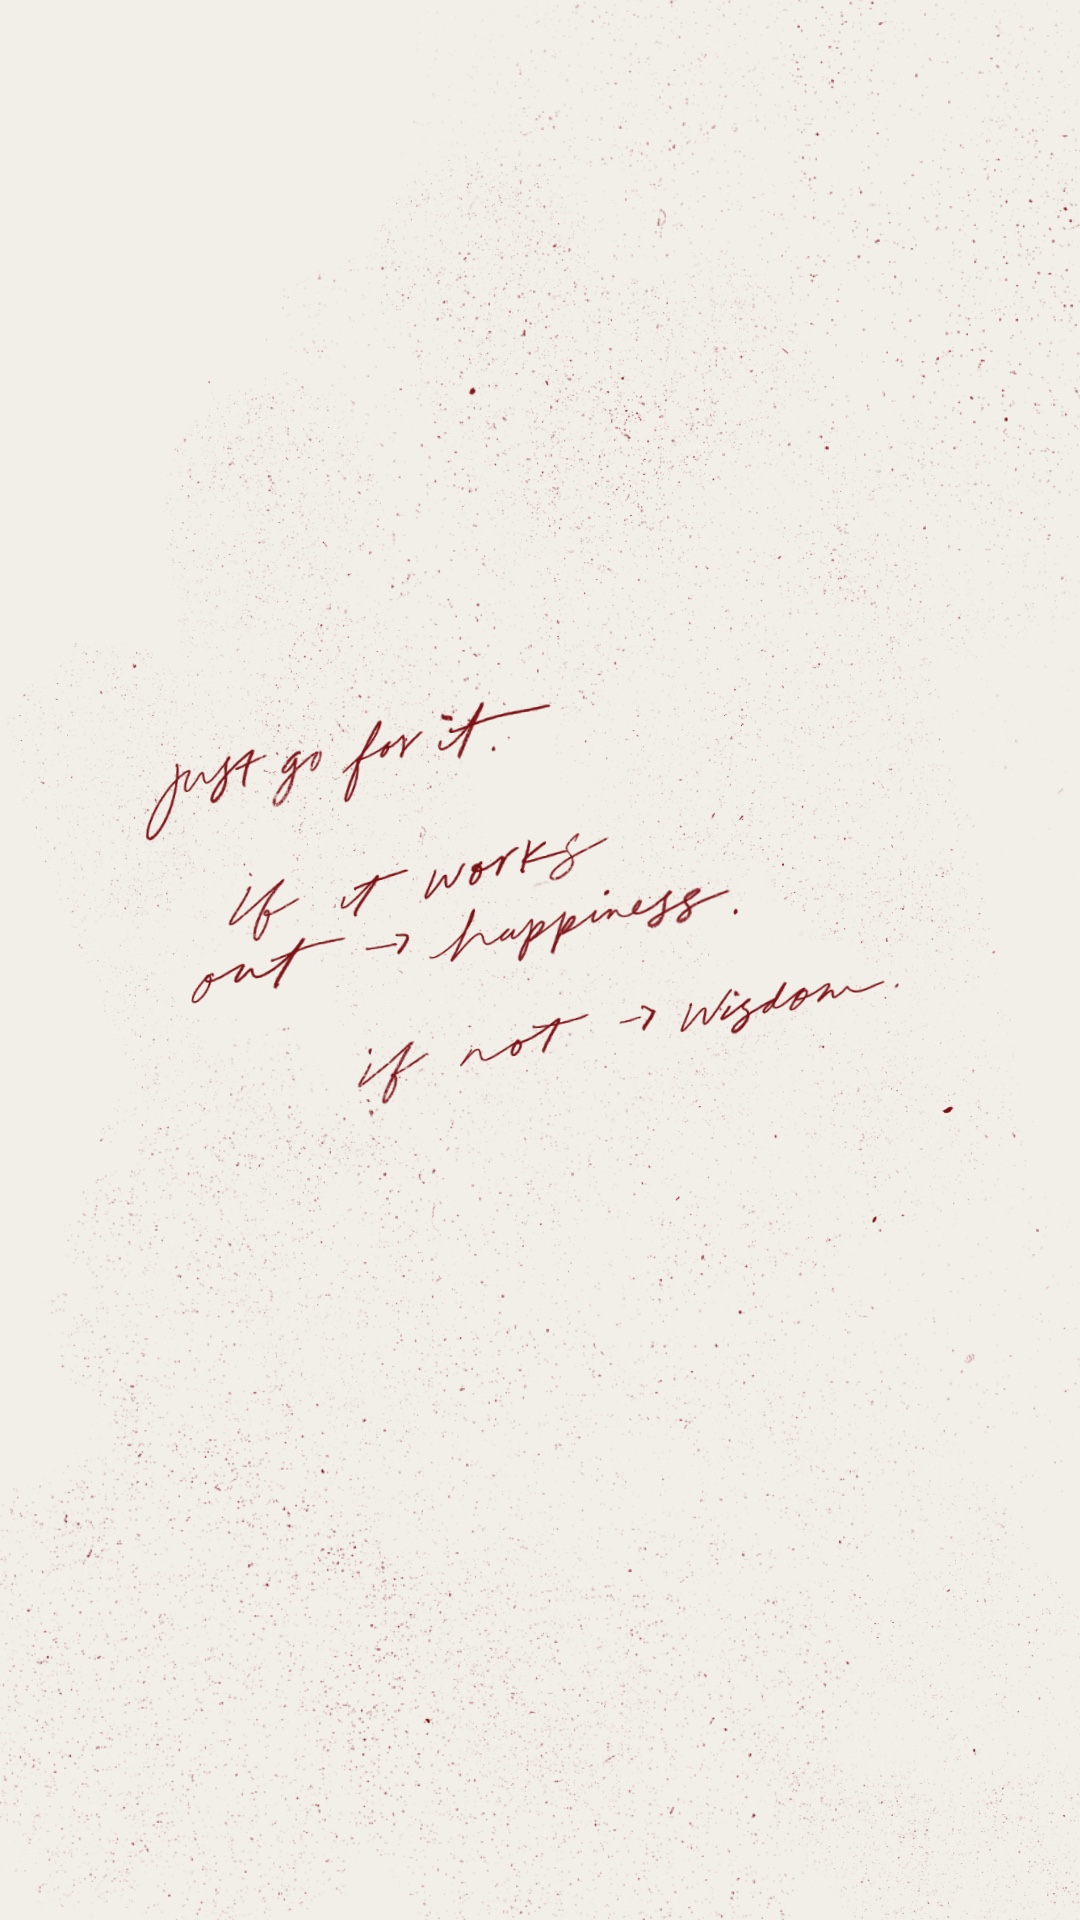 just go for it.
if it works
out → happiness.
if not → Wisdom.